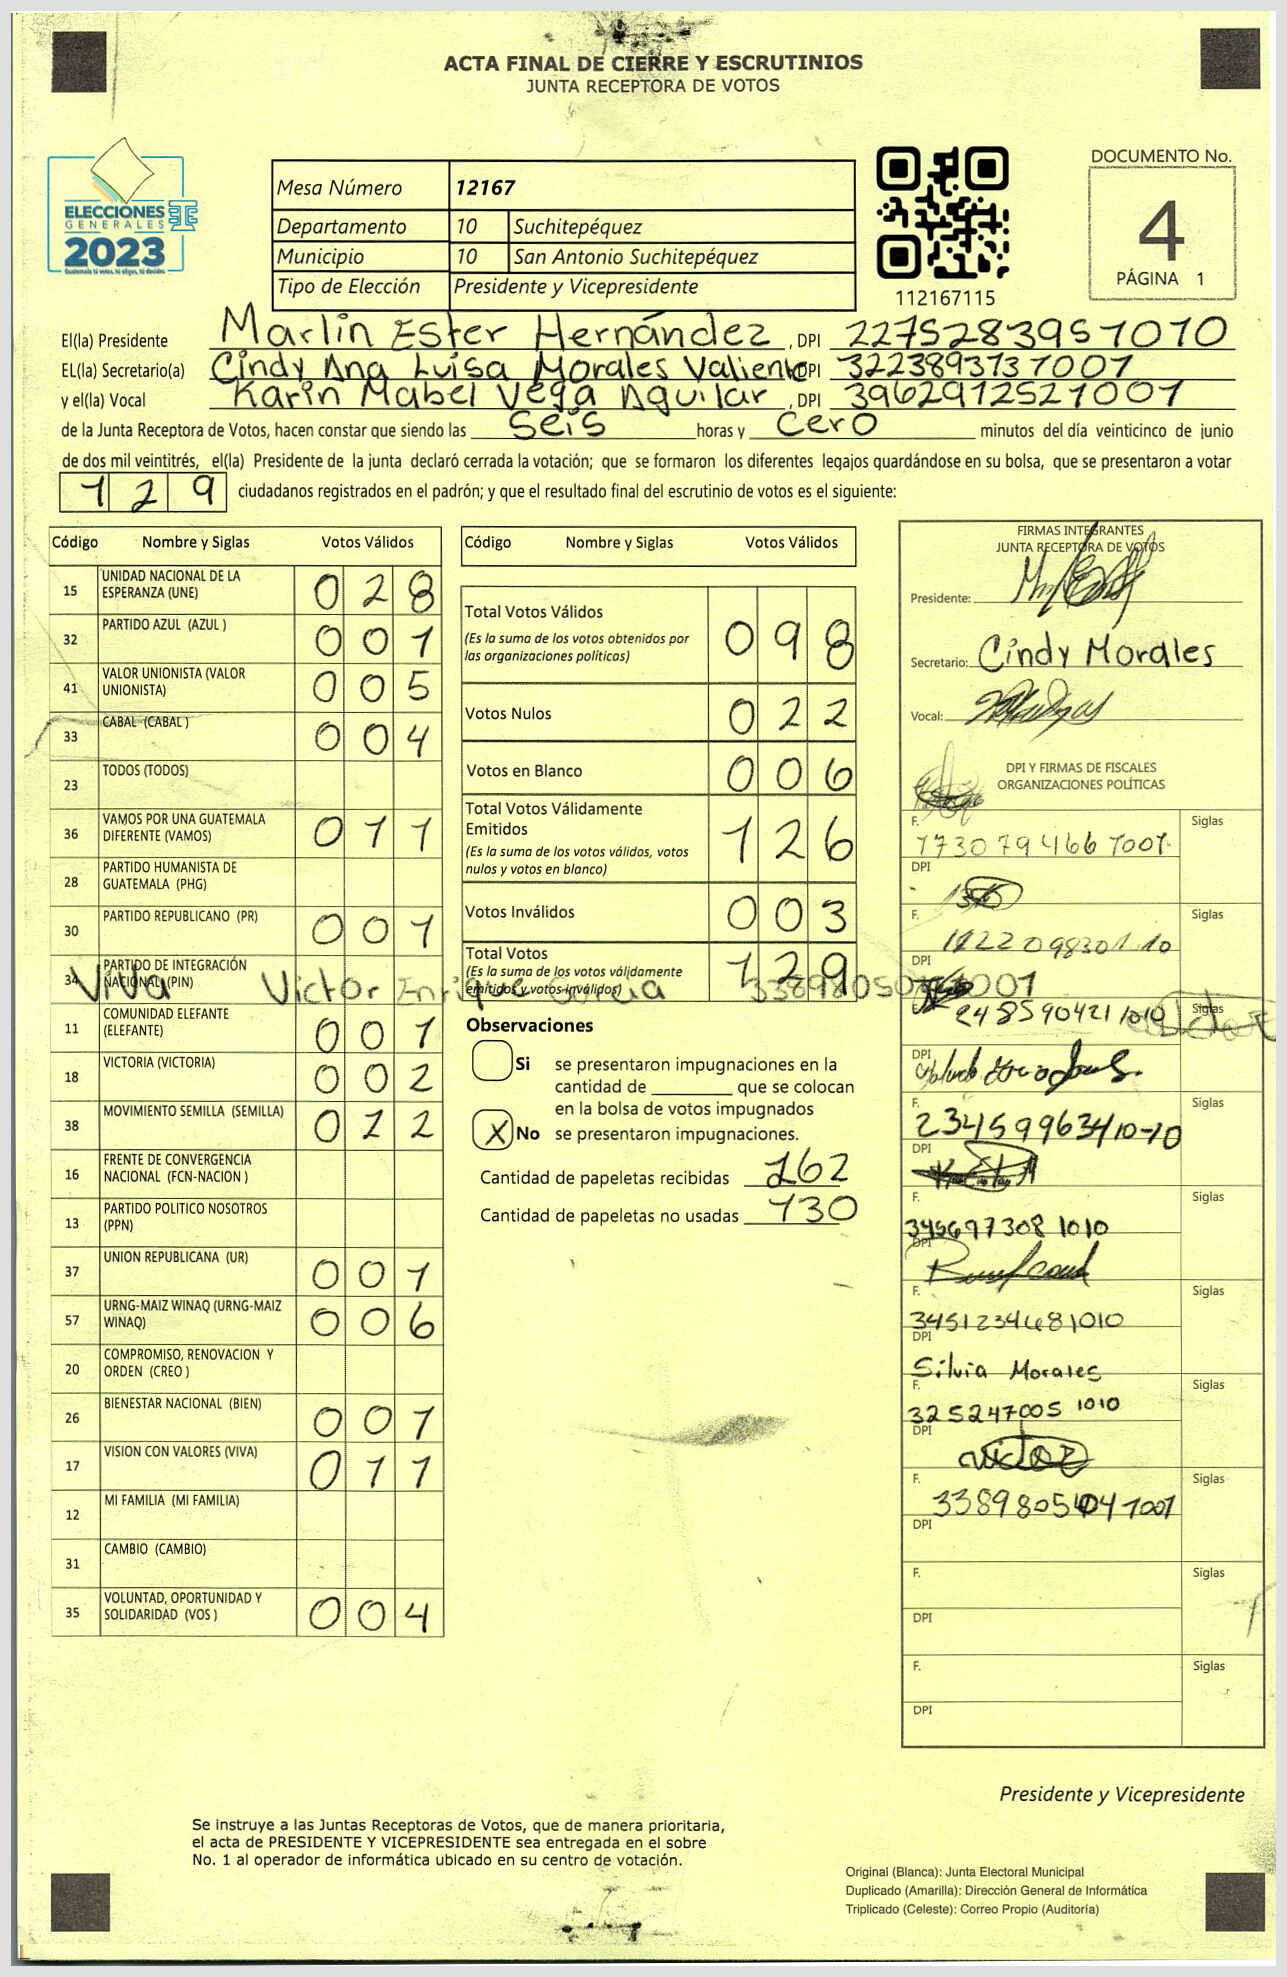 ACTA FINAL DE CIERRE Y ESCRUTINIOS
JUNTA RECEPTORA DE VOTOS
ELECCIONES
GENERALES
2023
Guatemala tú votas, tú eliges, tú decides
Mesa Número 12167
Departamento 10 Suchitepéquez
Municipio 10 San Antonio Suchitepéquez
Tipo de Elección Presidente y Vicepresidente
112167115
DOCUMENTO No.
4
PÁGINA 1
El(la) Presidente Marlin Ester Hernández, DPI 2275283951010
EL(la) Secretario(a) Cindy Ana Luisa Morales Valiente DPI 3223893731001
y el(la) Vocal Karin Mabel Vega Aguilar, DPI 3962912521001
de la Junta Receptora de Votos, hacen constar que siendo las seis horas y cero minutos del día veinticinco de junio
de dos mil veintitrés, el(la) Presidente de la junta declaró cerrada la votación; que se formaron los diferentes legajos guardándose en su bolsa, que se presentaron a votar
129 ciudadanos registrados en el padrón; y que el resultado final del escrutinio de votos es el siguiente:
Código Nombre y Siglas Votos Válidos
15 UNIDAD NACIONAL DE LA ESPERANZA (UNE) 028
32 PARTIDO AZUL (AZUL ) 001
41 VALOR UNIONISTA (VALOR UNIONISTA) 005
33 CABAL (CABAL ) 004
23 TODOS (TODOS)
36 VAMOS POR UNA GUATEMALA DIFERENTE (VAMOS) 011
28 PARTIDO HUMANISTA DE GUATEMALA (PHG)
30 PARTIDO REPUBLICANO (PR) 001
34 PARTIDO DE INTEGRACIÓN NACIONAL (PIN)
Viva Victor Enrique Garcia
11 COMUNIDAD ELEFANTE (ELEFANTE) 001
18 VICTORIA (VICTORIA) 002
38 MOVIMIENTO SEMILLA (SEMILLA) 022
16 FRENTE DE CONVERGENCIA NACIONAL (FCN-NACION )
13 PARTIDO POLITICO NOSOTROS (PPN)
37 UNION REPUBLICANA (UR) 001
57 URNG-MAIZ WINAQ (URNG-MAIZ WINAQ) 006
20 COMPROMISO, RENOVACION Y ORDEN (CREO )
26 BIENESTAR NACIONAL (BIEN) 001
17 VISION CON VALORES (VIVA) 011
12 MI FAMILIA (MI FAMILIA)
31 CAMBIO (CAMBIO)
35 VOLUNTAD, OPORTUNIDAD Y SOLIDARIDAD (VOS ) 004
Código Nombre y Siglas Votos Válidos
Total Votos Válidos 098
(Es la suma de los votos obtenidos por
las organizaciones políticas)
Votos Nulos 022
Votos en Blanco 006
Total Votos Válidamente
Emitidos 126
(Es la suma de los votos válidos, votos
nulos y votos en blanco)
Votos Inválidos 003
Total Votos 129
(Es la suma de los votos válidamente
emitidos y votos inválidos)
Observaciones
Si se presentaron impugnaciones en la
cantidad de ________ que se colocan
en la bolsa de votos impugnados
X No se presentaron impugnaciones.
Cantidad de papeletas recibidas 262
Cantidad de papeletas no usadas 130
FIRMAS INTEGRANTES
JUNTA RECEPTORA DE VOTOS
Presidente:
Secretario: Cindy Morales
Vocal:
DPI Y FIRMAS DE FISCALES
ORGANIZACIONES POLÍTICAS
F. Siglas
1730794661001
DPI
F. Siglas
DPI
Siglas
2485904211010
DPI
F. Siglas
2345996341010
DPI
F. Siglas
3456973081010
DPI
F. Siglas
3451234681010
DPI
Silvia Morales
F. Siglas
325247005 1010
DPI
F. Siglas
DPI
F. Siglas
DPI
F. Siglas
DPI
Presidente y Vicepresidente
Se instruye a las Juntas Receptoras de Votos, que de manera prioritaria,
el acta de PRESIDENTE Y VICEPRESIDENTE sea entregada en el sobre
No. 1 al operador de informática ubicado en su centro de votación.
Original (Blanca): Junta Electoral Municipal
Duplicado (Amarilla): Dirección General de Informática
Triplicado (Celeste): Correo Propio (Auditoría)